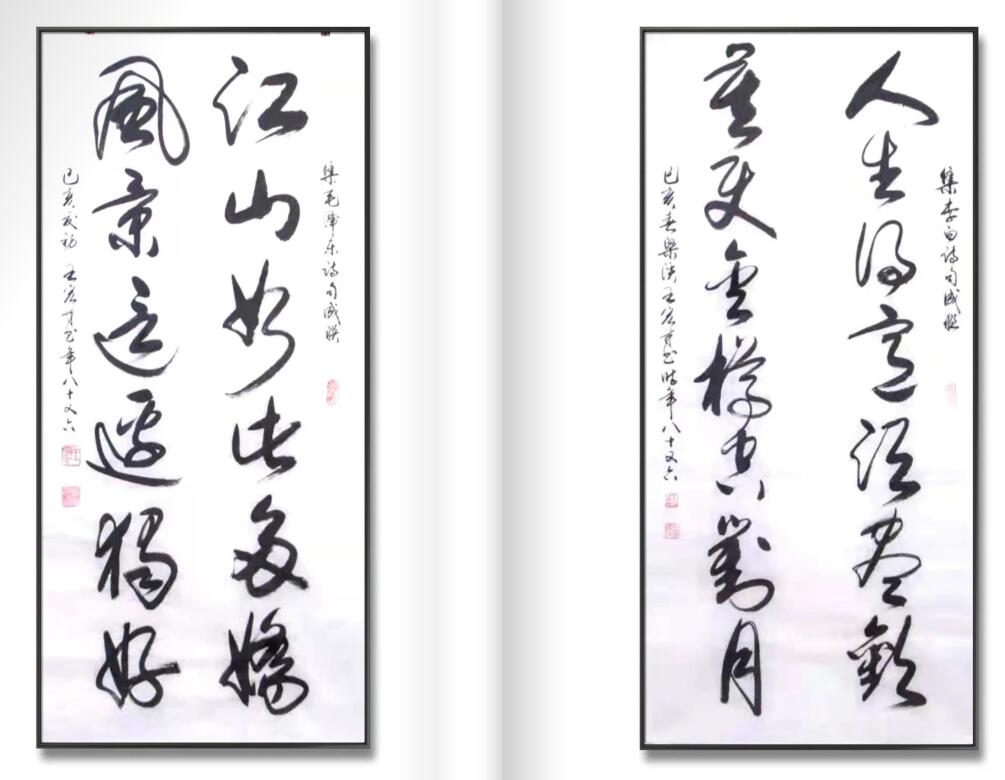 集李白诗句成联
人生得意須盡歡
莫使金樽空對月
己亥春梁溪王 时年八十又六
集毛泽东诗句成联
江山如此多嬌
風景這邊獨好
己亥 王 年八十又六